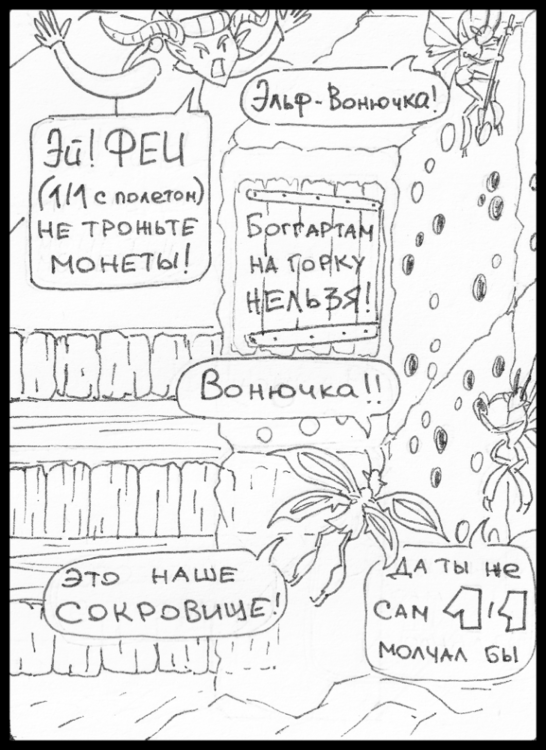 Эльф-Вонючка!
Эй! ФЕИ
(1/1 с полетом)
НЕ ТРОЖЬТЕ
МОНЕТЫ!
БОГГАРТАМ
НА ГОРКУ
НЕЛЬЗЯ!
Вонючка!!
ЭТО НАШЕ
СОКРОВИЩЕ!
ДА ТЫ ЖЕ
САМ 1/1
МОЛЧАЛ БЫ